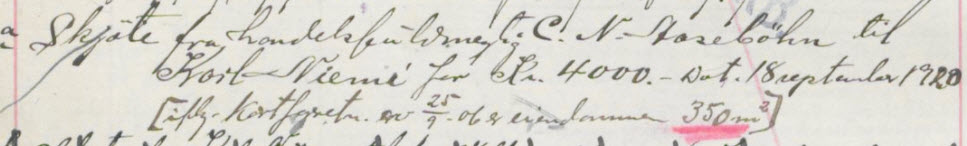 Skjöte fra handelsfuldmegtig C. N. Hasebøhn til
Karl Niemi for Kr. 4000.- Dat. 18 september 1920
[iflg. Kartforretn. av 25/9. ob er eiendommen 350 m²]